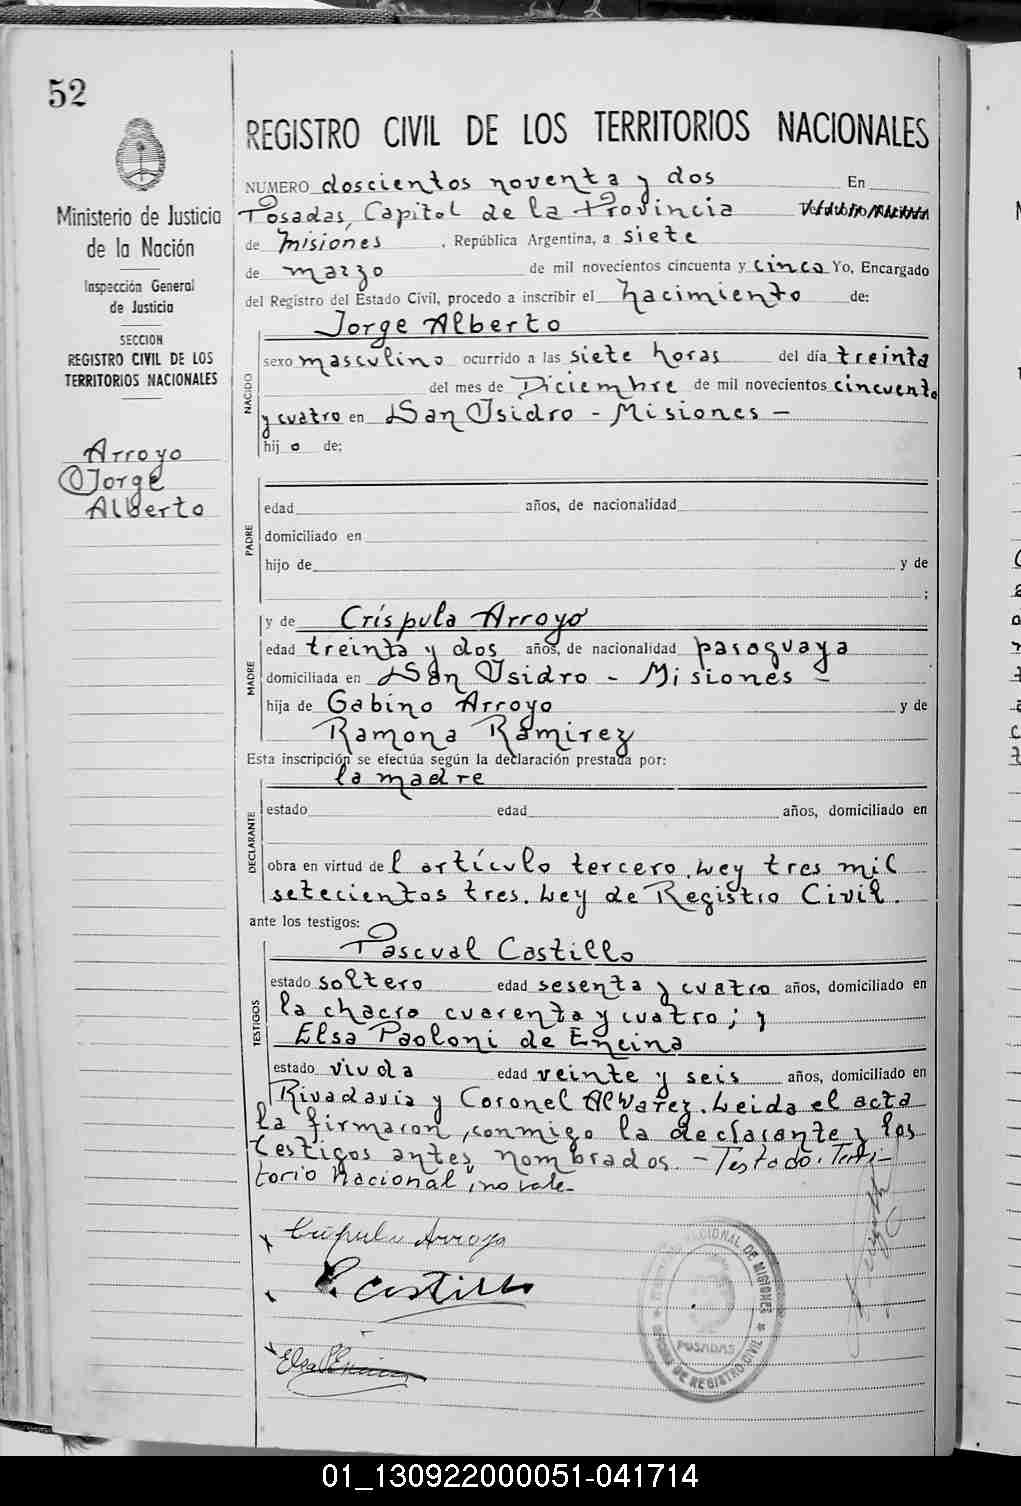 52
Ministerio de Justicia
de la Nación
Inspección General
de Justicia
SECCION
REGISTRO CIVIL DE LOS
TERRITORIOS NACIONALES
Arroyo
Jorge
Alberto
REGISTRO CIVIL DE LOS TERRITORIOS NACIONALES
NUMERO doscientos noventa y dos En
Posadas, Capital de la Provincia
de Misiones, República Argentina, a siete
de marzo de mil novecientos cincuenta y cinco Yo, Encargado
del Registro del Estado Civil, procedo a inscribir el nacimiento de:
NACIDO
Jorge Alberto
sexo masculino ocurrido a las siete horas del día treinta
del mes de Diciembre de mil novecientos cincuenta
y cuatro en San Isidro - Misiones -
hijo de:
PADRE
edad años, de nacionalidad
domiciliado en
hijo de y de
;
MADRE
y de Críspula Arroyo
edad treinta y dos años, de nacionalidad paraguaya
domiciliada en San Isidro - Misiones -
hija de Gabino Arroyo y de
Ramona Ramirez
Esta inscripción se efectúa según la declaración prestada por:
DECLARANTE
la madre
estado edad años, domiciliado en
obra en virtud del artículo tercero. Ley tres mil
setecientos tres. Ley de Registro Civil.
ante los testigos:
TESTIGOS
Pascual Castillo
estado soltero edad sesenta y cuatro años, domiciliado en
la chacra cuarenta y cuatro; y
Elsa Paoloni de Encina
estado viuda edad veinte y seis años, domiciliado en
Rivadavia y Coronel Alvarez. Leida el acta
la firmaron, conmigo la declarante y los
testigos antes nombrados. - Testado. Terri-
torio Nacional, no vale-
Críspula Arroyo
P. Castillo
Elsa P Encina
NACIONAL DE MISIONES
POSADAS
DE REGISTRO CIVIL
01_130922000051-041714